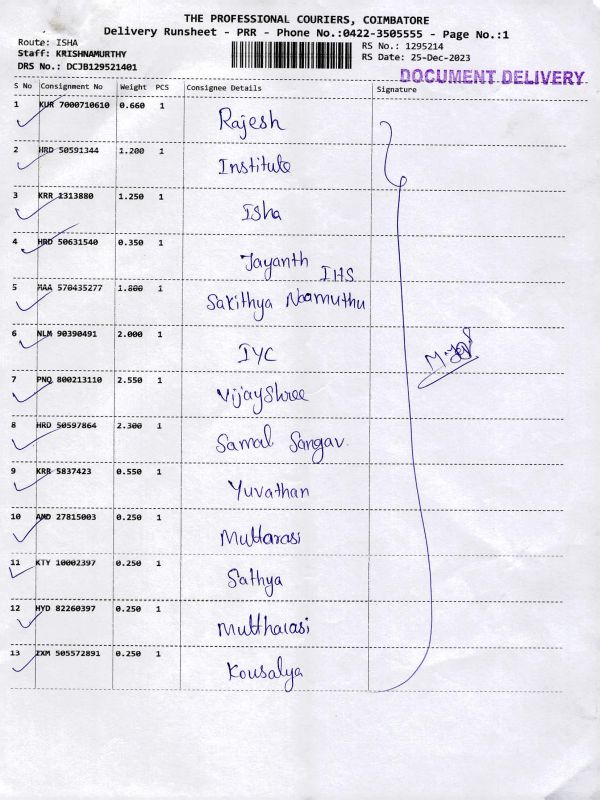 THE PROFESSIONAL COURIERS, COIMBATORE
Delivery Runsheet - PRR - Phone No.:0422-3505555 - Page No.:1
Route: ISHA
Staff: KRISHNAMURTHY
DRS No.: DCJB129521401
RS No.: 1295214
RS Date: 25-Dec-2023
DOCUMENT DELIVERY
S No Consignment No Weight PCS Consignee Details Signature
1 KUR 7000710610 0.660 1 Rajesh
2 HRD 50591344 1.200 1 Institute
3 KRR 1313880 1.250 1 Isha
4 HRD 50631540 0.350 1 Jayanth IHS
5 MAA 570435277 1.800 1 Sakithya Naamuthu
6 NLM 90390491 2.000 1 IYC
7 PNQ 800213110 2.550 1 Vijayshree
8 HRD 50597864 2.300 1 Samal Sangav
9 KRR 5837423 0.550 1 Yuvathan
10 AMD 27815003 0.250 1 Muttarasi
11 KTY 10002397 0.250 1 Sathya
12 HYD 82260397 0.250 1 Muttharasi
13 IXM 505572891 0.250 1 Kousalya